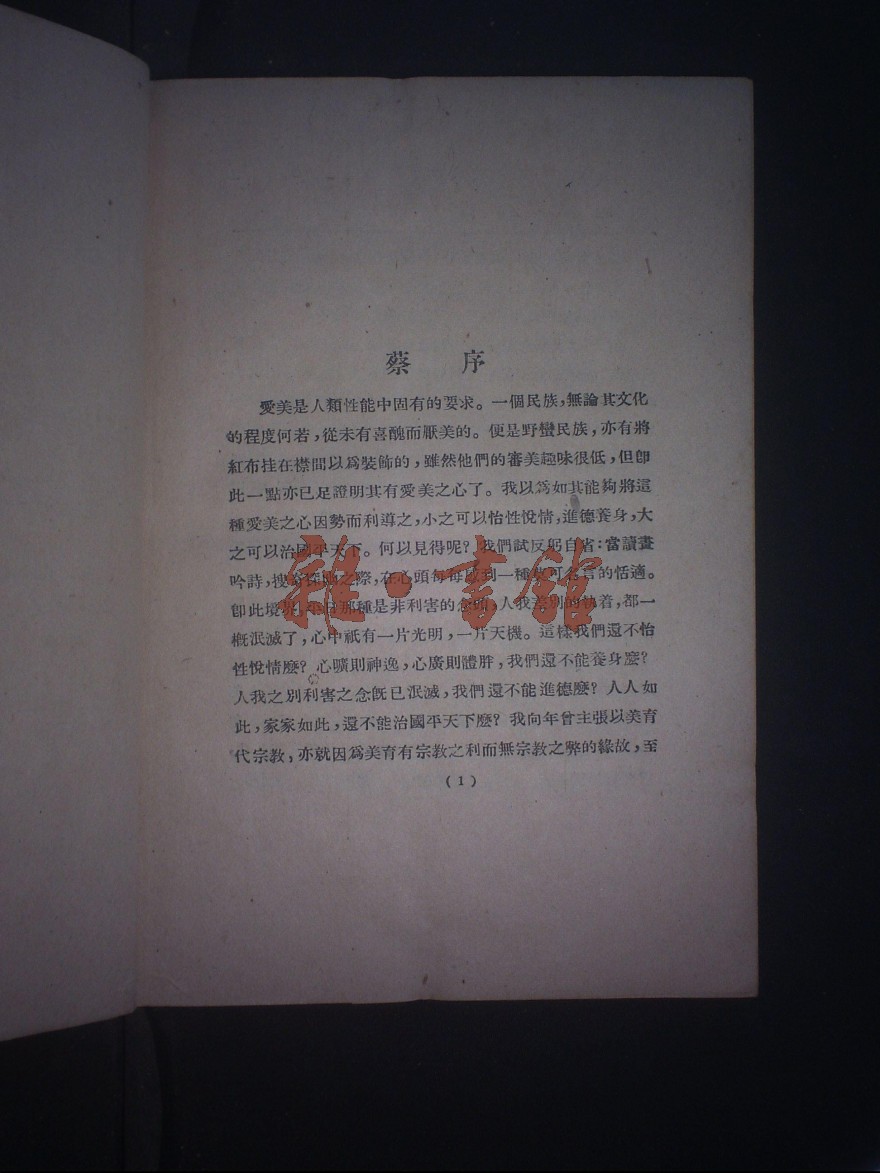 蔡 序
愛美是人類性能中固有的要求。一個民族，無論其文化
的程度何若，從未有喜醜而厭美的。便是野蠻民族，亦有將
紅布挂在襟間以爲裝飾的，雖然他們的審美趣味很低，但卽
此一點亦已足證明其有愛美之心了。我以爲如其能夠將這
種愛美之心因勢而利導之，小之可以怡性悅情，進德養身，大
之可以治國平天下。何以見得呢？我們試反躬自省：當讀畫
吟詩，搜奇探幽之際，在心頭每每感到一種莫可名言的恬適。
卽此境界，平日那種是非利害的念頭，人我差別的執着，都一
概泯滅了，心中祇有一片光明，一片天機。這樣我們還不怡
性悅情麼？心曠則神逸，心廣則體胖，我們還不能養身麼？
人我之別利害之念旣已泯滅，我們還不能進德麼？人人如
此，家家如此，還不能治國平天下麼？我向年曾主張以美育
代宗教，亦就因爲美育有宗教之利而無宗教之弊的緣故，至
(1)
雜·書館